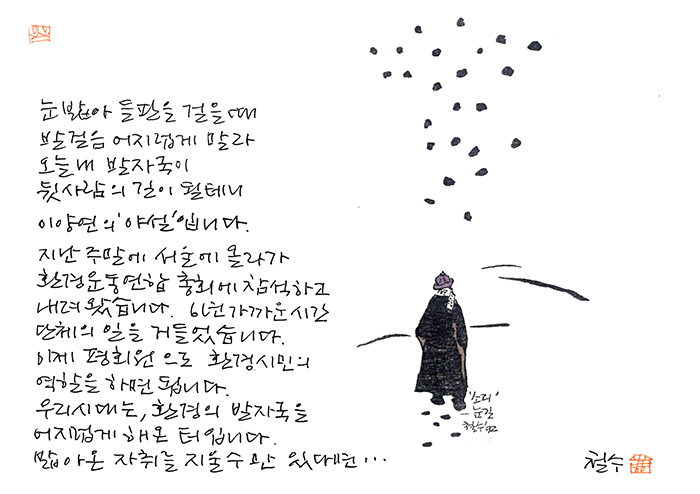 눈밟아 들판을 걸을 때
발걸음 어지럽게 말라
오늘 내 발자국이
뒷사람의 길이 될테니
이양연의 '야설'입니다.
지난 주말에 서울에 올라가
환경운동연합 총회에 참석하고
내려왔습니다. 6년 가까운 시간
단체의 일을 거들었습니다.
이제 평회원으로 환경시민의
역할을 하면 됩니다.
우리시대는, 환경의 발자국을
어지럽게 해온 터입니다.
밟아온 자취를 지울 수만 있다면…
'소리'
– 눈길
철수 '92
철수